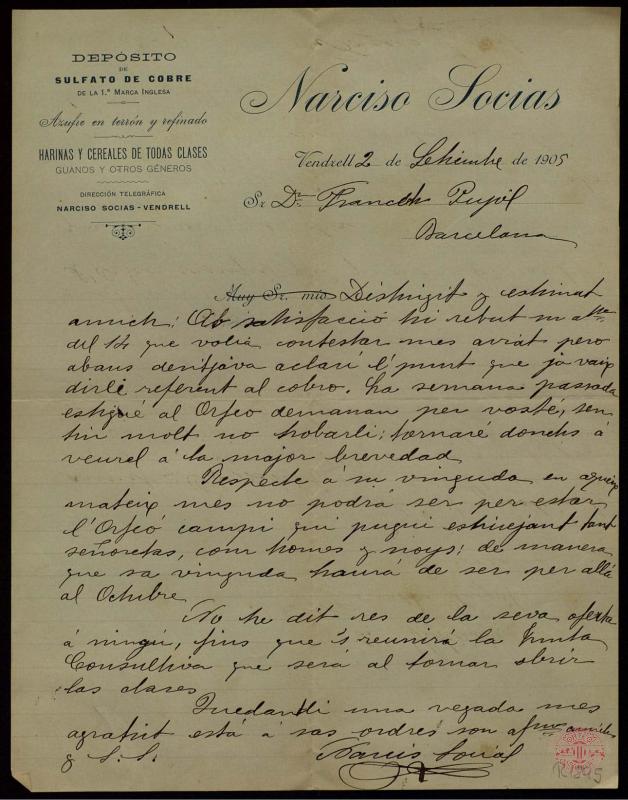 DEPÓSITO
DE
SULFATO DE COBRE
DE LA 1.ª MARCA INGLESA
Azufre en terrón y refinado
HARINAS Y CEREALES DE TODAS CLASES
GUANOS Y OTROS GÉNEROS
DIRECCIÓN TELEGRÁFICA
NARCISO SOCIAS - VENDRELL
Narciso Socias
Vendrell 2 de Setiembre de 1905
Sr. Dn. Francesch Pujól
Barcelona
Muy Sr. mío Distingit y estimat
amich: Ab satisfacció hi rebut su atta.
del 14 que voliá contestar mes aviat pero
abans desitjava aclarí l'punt que ja vaig
dirli referent al cobro. La semana passada
estigué al Orfeo demanan per vosté, sen
tin molt no trobarli; tornaré donchs á
veurel á la major brevedad
Respecte á su vinguda en aquix
mateix mes no podrá ser per estar
l'Orfeó campi qui pugui estuejant tant
señoretas, com homes y noys; de manera
que sa vinguda haurá de ser per allá
al Octubre
No he dit res de la seva oferta
á ningú, fins que 's reunirá la Junta
Consultiva que será al tornar obrir
las clases
Quedantli una vegada mes
agrahit está á sas ordres son afmo. amich
y S. S. Narcis Socias
R1895